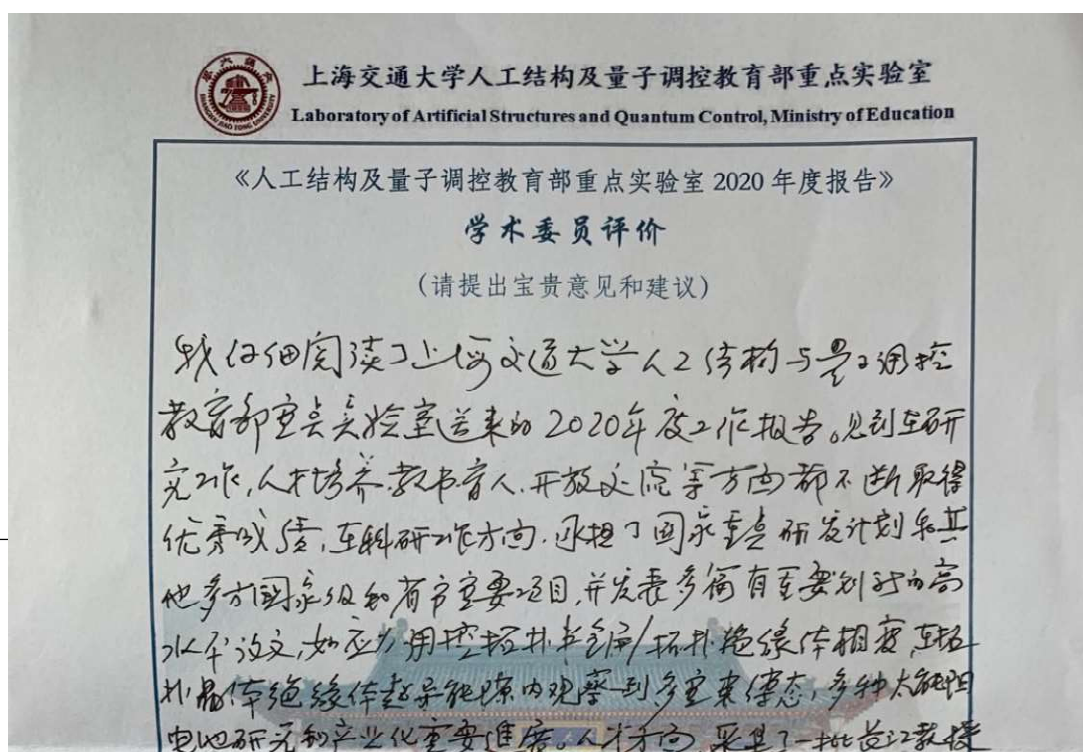 上海交通大学人工结构及量子调控教育部重点实验室
Laboratory of Artificial Structures and Quantum Control, Ministry of Education
《人工结构及量子调控教育部重点实验室 2020 年度报告》
学术委员评价
(请提出宝贵意见和建议)
我仔细阅读了上海交通大学人工结构与量子调控
教育部重点实验室送来的2020年度工作报告。见到在研
究工作,人才培养.教书育人.开放交流等方面都不断取得
优秀成绩,在科研工作方面.承担了国家重点研发计划和其
他多方国家级和省市重要项目,并发表多篇有重要创新的高
水平论文,如应力调控拓扑半金属/拓扑绝缘体相变,在拓
扑晶体绝缘体超导能隙内观察到多重束缚态,多种太阳能
电池研究和产业化重要进展。人才方面 聚集了一批长江教授